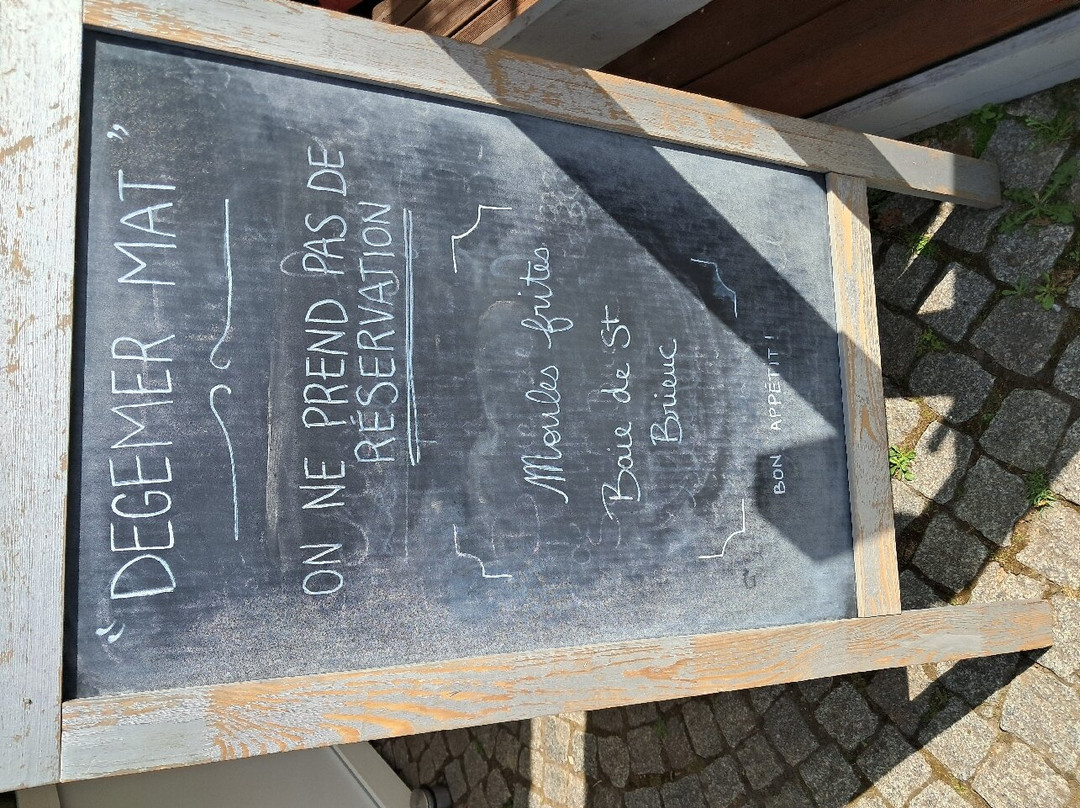 “DEGEMER MAT”
ON NE PREND PAS DE
RÉSERVATION
Moules frites
Baie de St
Brieuc
BON APPÉTIT !